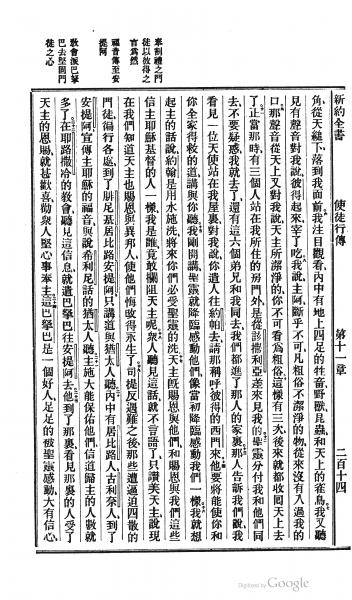 新約全書 使徒行傳 第十一章 二百十四
角、從天縋下、落到我面前、我注目觀看、內中有地上四足的牲畜野獸、昆蟲、和天上的雀鳥、我又聽
見有聲音對我說、彼得起來、宰了吃、我說、主阿、斷乎不可、凡粗俗不潔淨的物、從來沒有入過我的
口、那聲音從天上又對我說、天主所潔淨的、你不可看爲粗俗、這樣有三次、後來就都收回天上去
了、正當那時、有三個人站在我所住的房門外、是從該撒利亞差來見我的、聖靈分付我和他們同
去、不要疑惑、我就去了、還有這六個弟兄、和我同去、我們都進了那人的家裏、那人告訴我們說、我
看見一位天使、站在我屋裏、對我說、你遣人往約帕去、請那稱呼彼得的西門來、他要將能使你和
你全家得救的道、講與你聽、我剛開講、聖靈就降臨感動他們、像當初降臨感動我們一樣、我就想
起主的話說、約翰是用水施洗、將來你們必受聖靈的洗、天主旣賜恩與他們、和賜恩與我們這些
信主耶穌基督的人一樣、我是誰、竟敢攔阻天主呢、衆人聽見這話、就不言語了、只讚美天主說、現
在我們知道天主也賜恩與異邦人、使他們悔改得永生了、司提反遇難之後、那些遭逼迫四散的
門徒、徧行各處、到了腓尼基居比路安提阿、只講道與猶太人聽、內中有居比路人、古利奈人、到了
安提阿、宣傳主耶穌的福音、與說希利尼話的猶太人聽、主施大能保佑他們、信道歸主的人數就
多了、在耶路撒冷的教會、聽見這信息、就遣巴拏巴往安提阿去、他到了那裏、看見那裏的人受了
天主的恩賜、就甚歡喜、勸衆人堅心事奉主、這巴拏巴是一個好人、足足的被聖靈感動、大有信心、
奉割禮之門
徒以彼得之
言爲然
福音傳至安
提阿
敎會派巴拏
巴去堅固門
徒之心
Digitized by Google